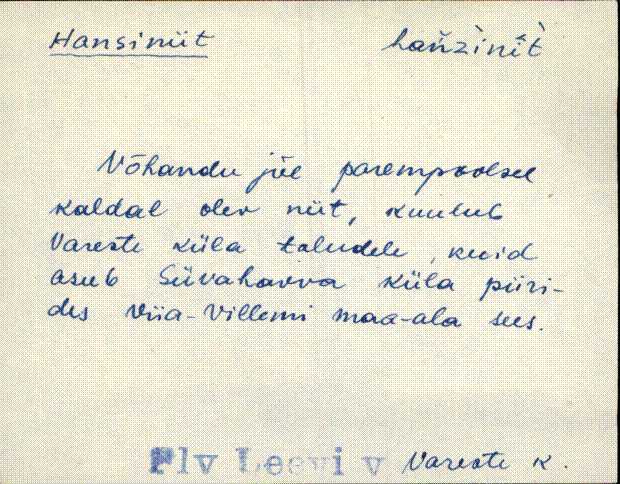 Hansiniit hańzìnìt̀
Võhandu jõe parempoolsel
kaldal olev niit, kuulub
Vareste küla taludele, kuid
asub Süvahavva küla piiri-
des Viia-Villemi maa-ala sees.
Plv Leevi v Vareste k.